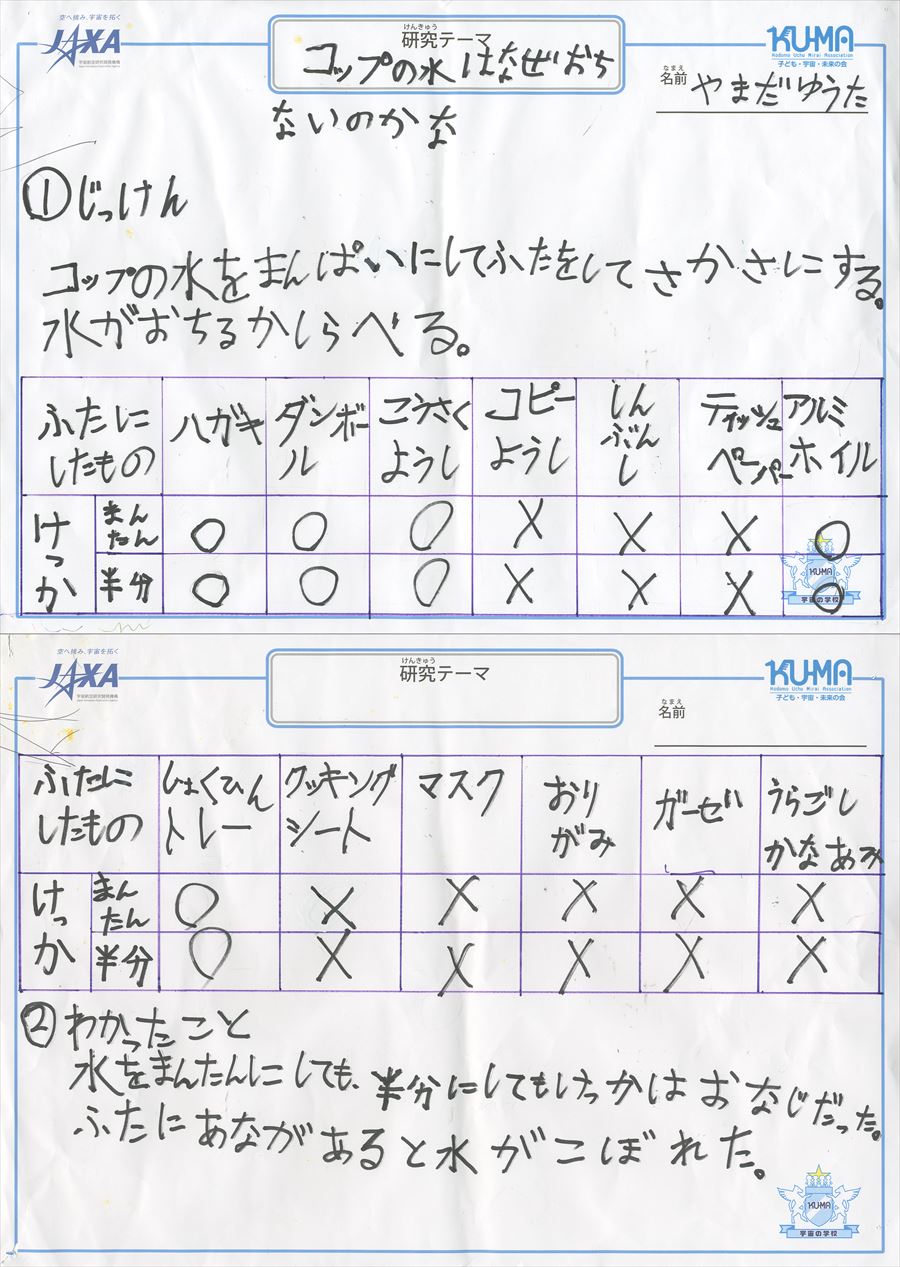 空へ挑み、宇宙を拓く
JAXA
宇宙航空研究開発機構
けんきゅう
研究テーマ
コップの水はなぜおち
ないのかな
KU-MA
Kodomo Uchu Mirai Association
子ども・宇宙・未来の会
なまえ
名前 やまだゆうた
①じっけん
コップの水をまんぱいにしてふたをしてさかさにする。
水がおちるかしらべる。
ふたにしたもの ハガキ ダンボール こうさくようし コピーようし しんぶんし ティッシュペーパー アルミホイル
けっか まんたん ○ ○ ○ × × × ○
半分 ○ ○ ○ × × × ○
KU-MA
宇宙の学校
空へ挑み、宇宙を拓く
JAXA
宇宙航空研究開発機構
けんきゅう
研究テーマ
KU-MA
Kodomo Uchu Mirai Association
子ども・宇宙・未来の会
なまえ
名前
ふたにしたもの しょくひんトレー クッキングシート マスク おりがみ ガーゼ うらごしかなあみ
けっか まんたん ○ × × × × ×
半分 ○ × × × × ×
②わかったこと
水をまんたんにしても、半分にしてもけっかはおなじだった。
ふたにあながあると水がこぼれた。
KU-MA
宇宙の学校